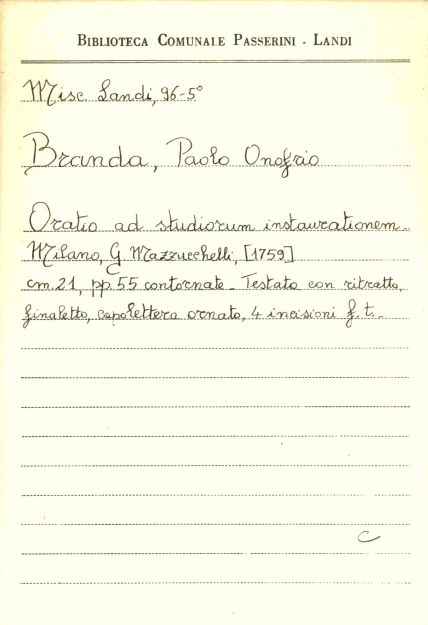 BIBLIOTECA COMUNALE PASSERINI - LANDI
Misc. Landi, 96-5°
Branda, Paolo Onofrio
Oratio ad studiorum instaurationem.
Milano, G. Mazzucchelli, [1759]
cm. 21, pp. 55 contornate. Testata con ritratto,
finaletto, capolettera ornato, 4 incisioni f. t.
C